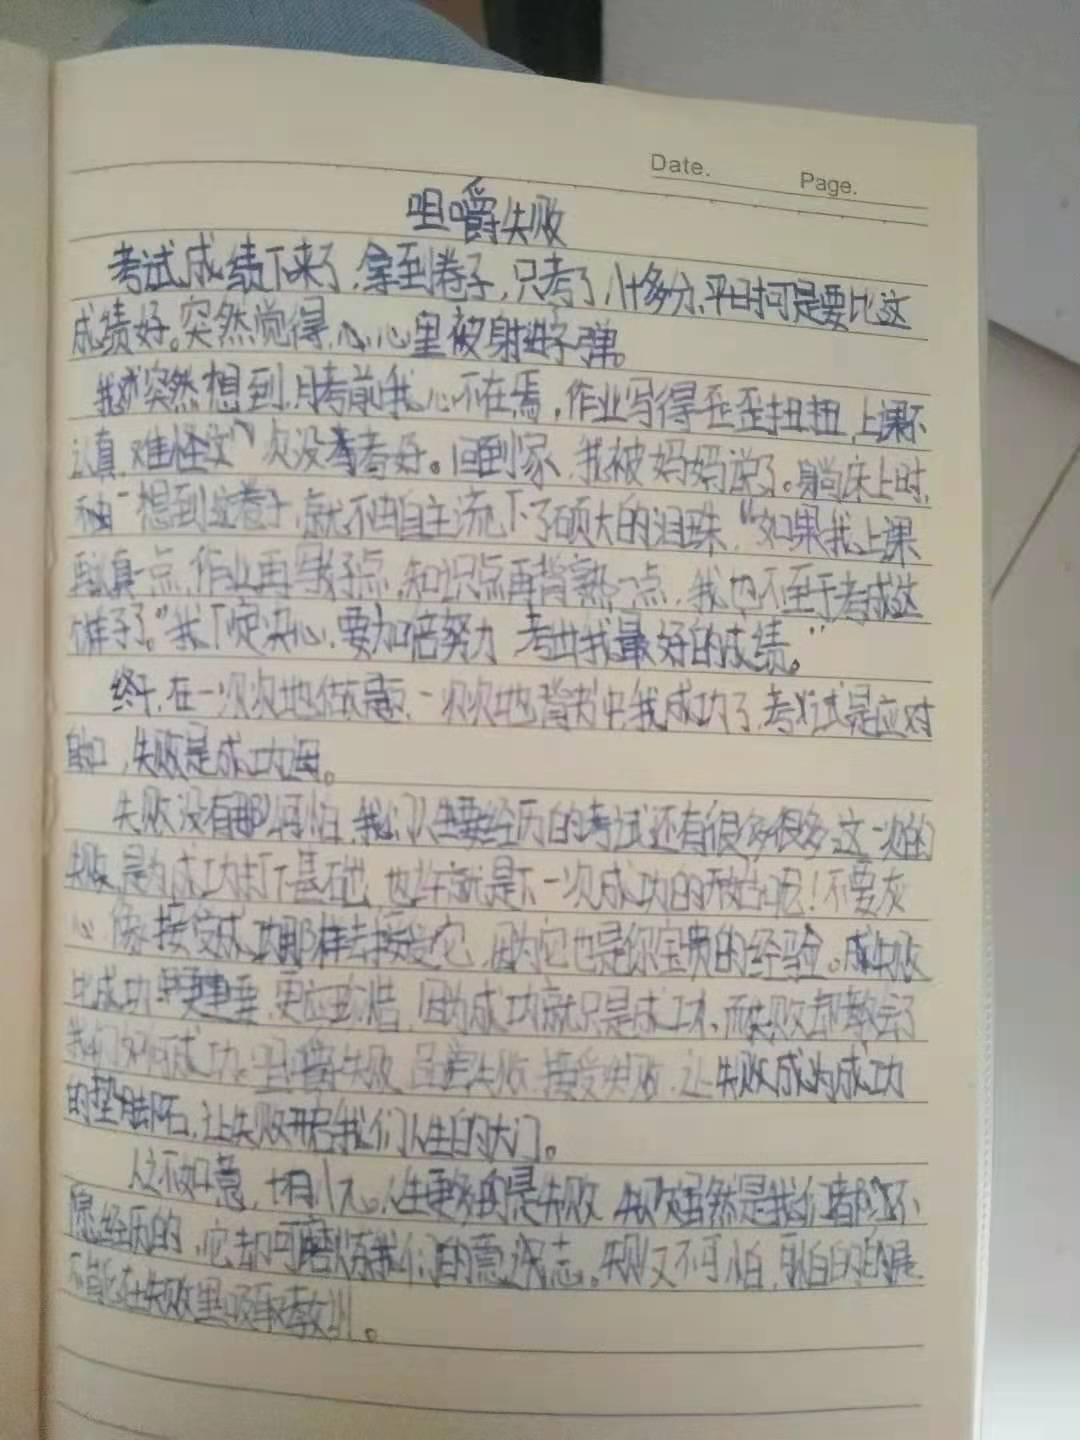 Date.
Page.
咀嚼失败
考试成绩下来了，拿到卷子，只考了八十多分，平时可是要比这
成绩好。突然觉得，心里被射进子弹。
我突然想到，月考前我心不在焉，作业写得歪歪扭扭，上课不
认真，难怪这一次没有考好。回到家，我被妈妈说了。躺床上时，
一想到这卷子，就不由自主流下了硕大的泪珠，“如果我上课
再认真一点，作业再写好点，知识点再背熟一点，我也不至于考成这
样子了。”我下定决心，要加倍努力 考出我最好的成绩。”
终于，在一次次地做题，一次次地背书中，我成功了，考试是应对
的，失败是成功母。
失败没有那么可怕，我们人生要经历的考试还有很多很多，这一次的
失败，是为成功打下基础，也许就是下一次成功的开始呢！不要灰
心，像接受成功那样去接受它，因为它也是你宝贵的经验。失败
比成功更重，更应珍惜，因为成功就只是成功，而失败却教会了
我们如何成功。咀嚼失败，品尝失败，接受失败，让失败成为成功
的垫脚石，让失败开启我们人生的大门。
人之不如意，十有八九。人生更多的是失败，失败虽然是我们都不
愿经历的，它却可磨炼我们的意志。失败又不可怕，可怕的是
不能在失败里吸取教训。